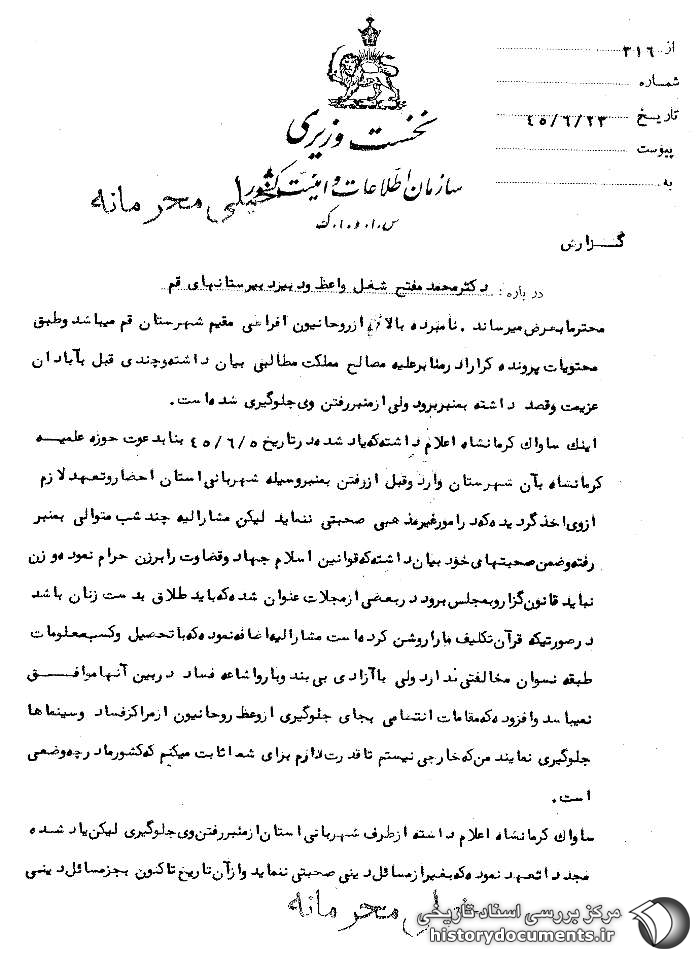 از ۳۱۶
شماره
تاریخ ۴۵/۶/۲۳
پیوست
به
نخست وزیری
سازمان اطلاعات و امنیت کشور
س.ا.و.ا.ک
خیلی محرمانه
گزارش
درباره: دکتر محمد مفتح شغل واعظ و دبیر دبیرستانهای قم
محترما بعرض میرساند. نامبرده بالا از روحانیون افراطی مقیم شهرستان قم میباشد و طبق
محتویات پرونده کرارا در منابر علیه مصالح مملکت مطالبی بیان داشته و چندی قبل بآبادان
عزیمت و قصد داشته بمنبر برود ولی از منبر رفتن وی جلوگیری شده است.
اینک ساواک کرمانشاه اعلام داشته که یاد شده در تاریخ ۴۵/۶/۵ بنا بدعوت حوزه علمیه
کرمانشاه بآن شهرستان وارد و قبل از رفتن بمنبر وسیله شهربانی استان احضار و تعهد لازم
از وی اخذ گردیده که در امور غیر مذهبی صحبتی ننماید لیکن مشارالیه چند شب متوالی بمنبر
رفته و ضمن صحبتهای خود بیان داشته که قوانین اسلام جهاد و قضاوت را بر زن حرام نموده و زن
نباید قانون گزار و بمجلس برود در بعضی از مجلات عنوان شده که باید طلاق بدست زنان باشد
در صورتیکه قرآن تکلیف ما را روشن کرده است مشارالیه اضافه نموده که با تحصیل و کسب معلومات
طبقه نسوان مخالفتی ندارد ولی با آزادی بی بند وبار و اشاعه فساد در بین آنها موافق
نمیباسد و افزوده که مقامات انتظامی بجای جلوگیری از وعظ روحانیون از مراکز فساد و سینماها
جلوگیری نمایند من که خارجی نیستم تا قدرت دارم برای شما ثابت میکنم که کشور ما در چه وضعی
است.
ساواک کرمانشاه اعلام داشته از طرف شهربانی استان از منبر رفتن وی جلوگیری لیکن یاد شده
مجددا تعهد نموده که بغیر از مسائل دینی صحبتی ننماید و از آن تاریخ تا کنون بجز مسائل دینی
خیلی محرمانه
مرکز بررسی اسناد تاریخی
historydocuments.ir